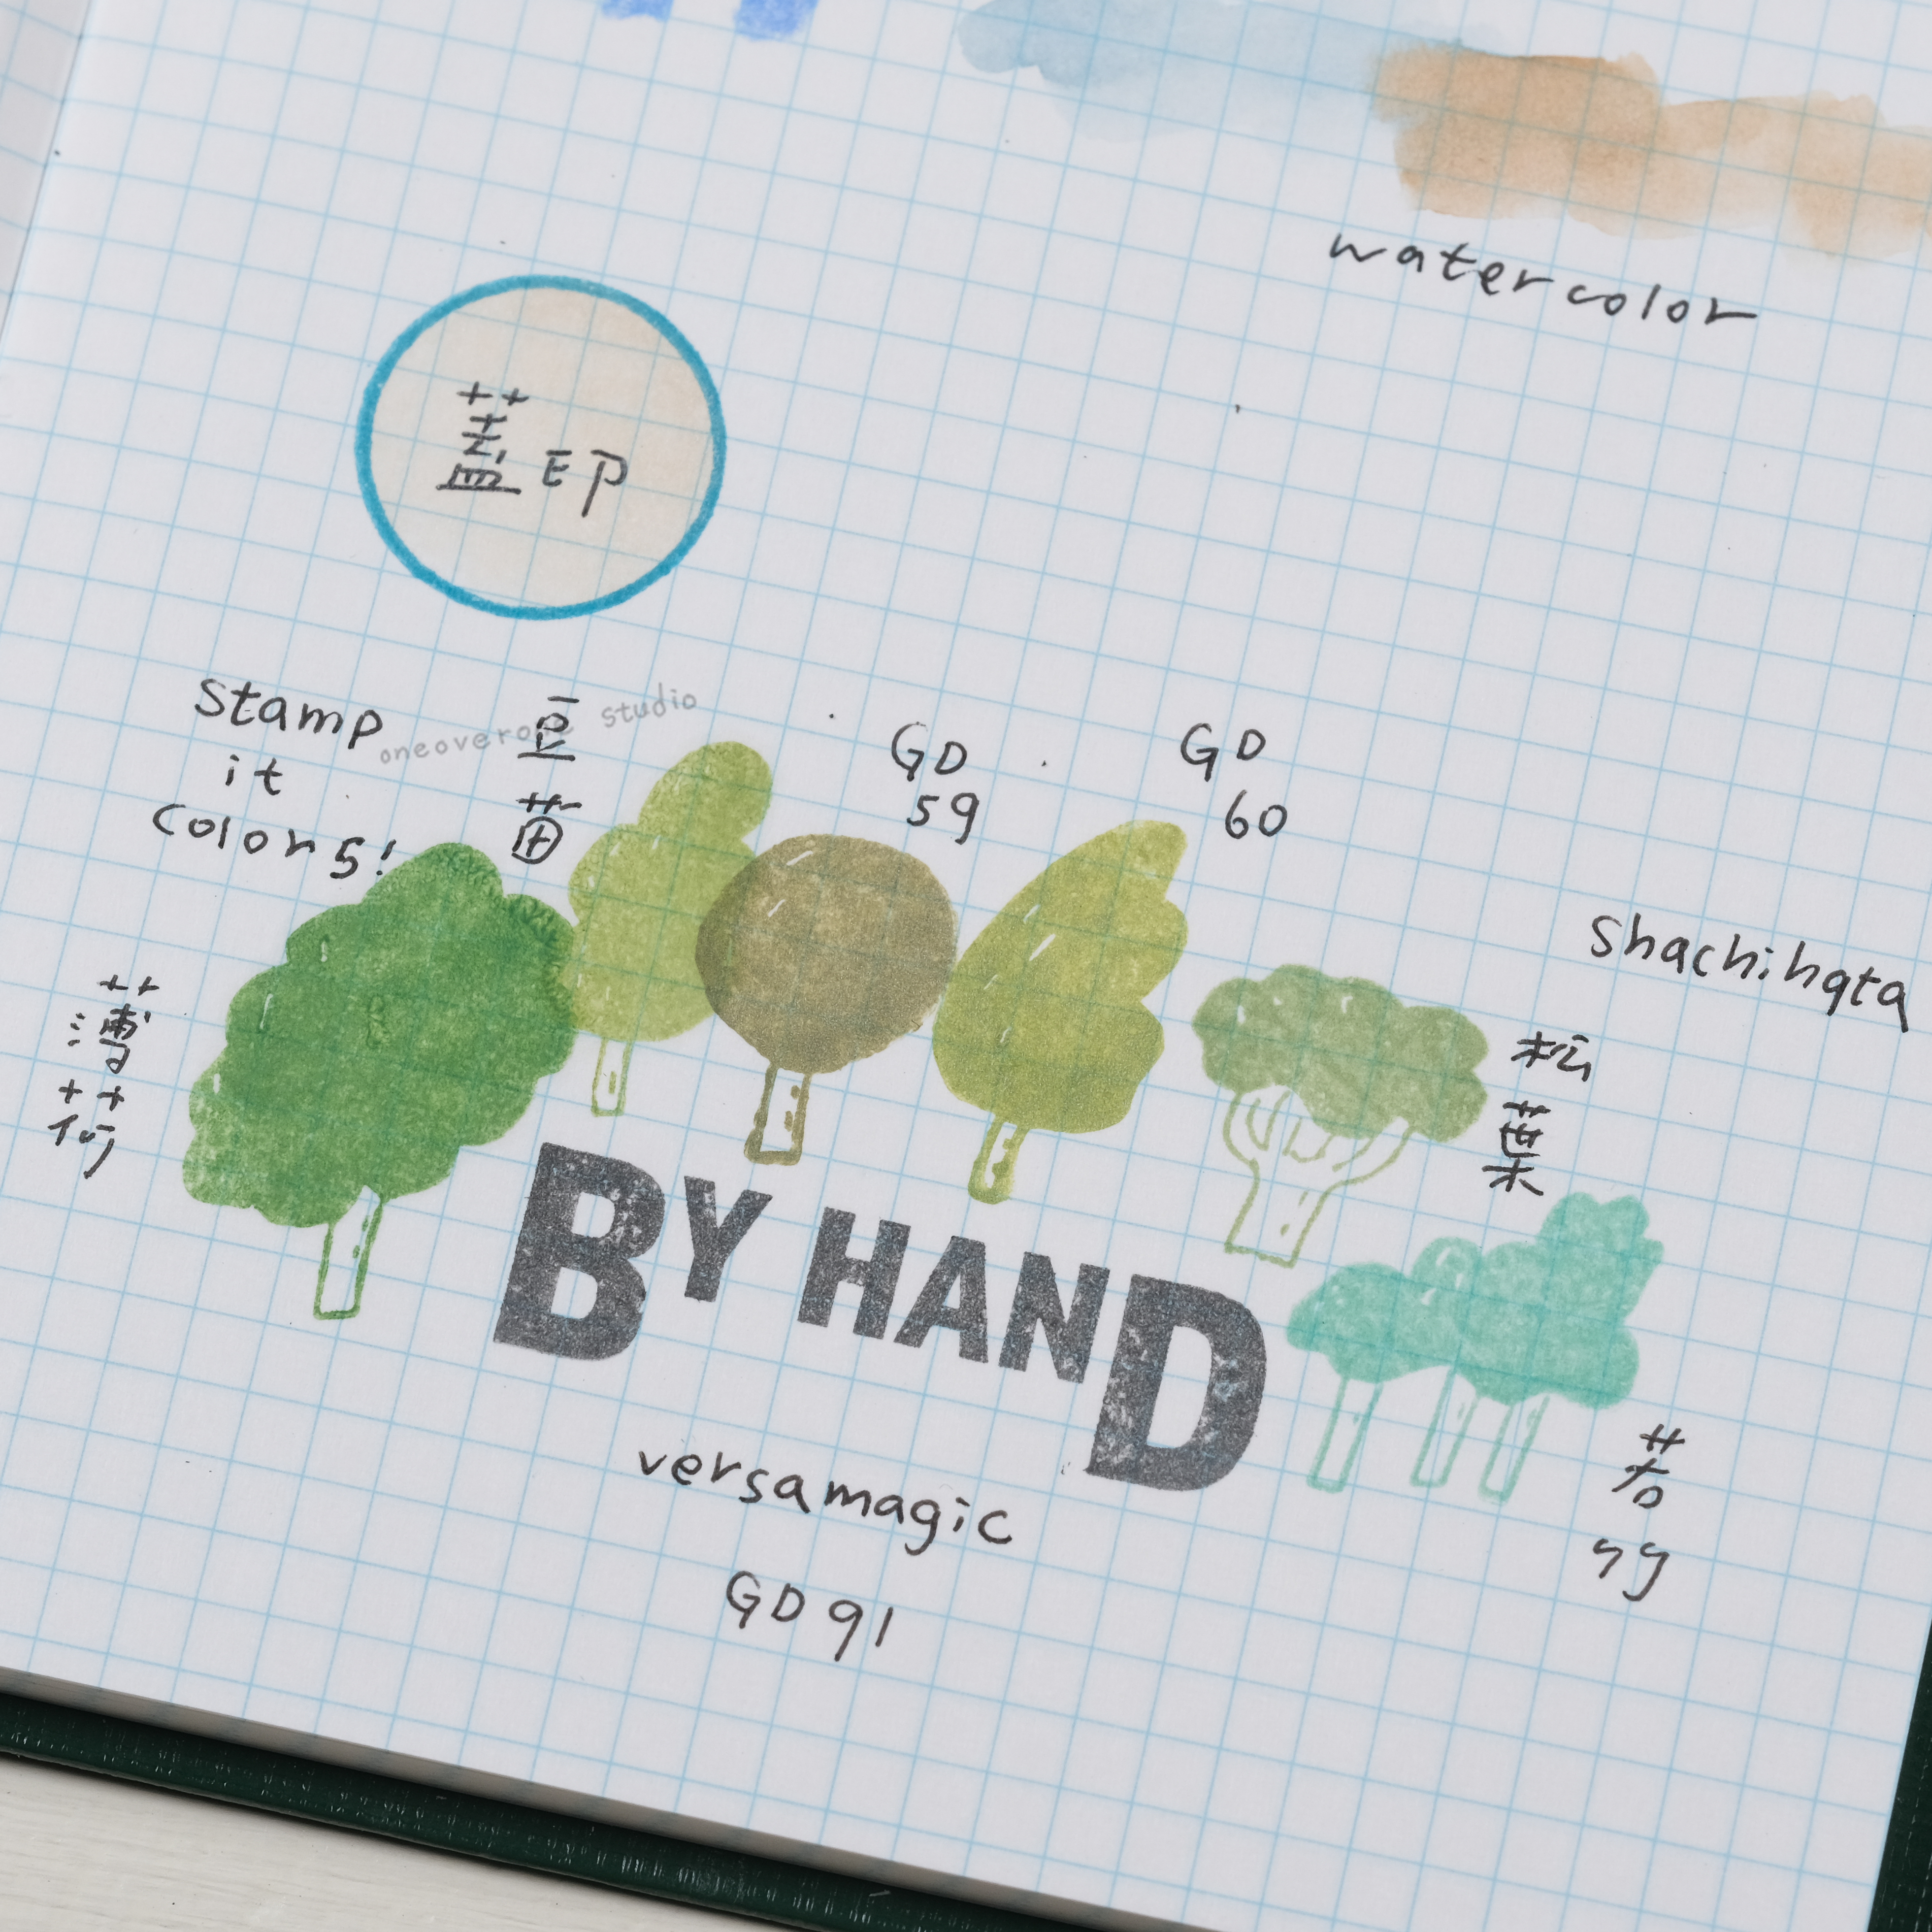 watercolor
蓋印
stamp
it
colors!
豆
苗
oneoverone studio
GD
59
GD
60
shachihata
薄
荷
松
葉
BY HAND
若
竹
versamagic
GD91